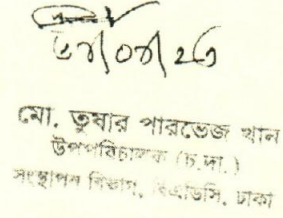 মো. তুষার পারভেজ খান
উপপরিচালক (চ.দা.)
সংস্থাপন বিভাগ, বিএডিসি, ঢাকা